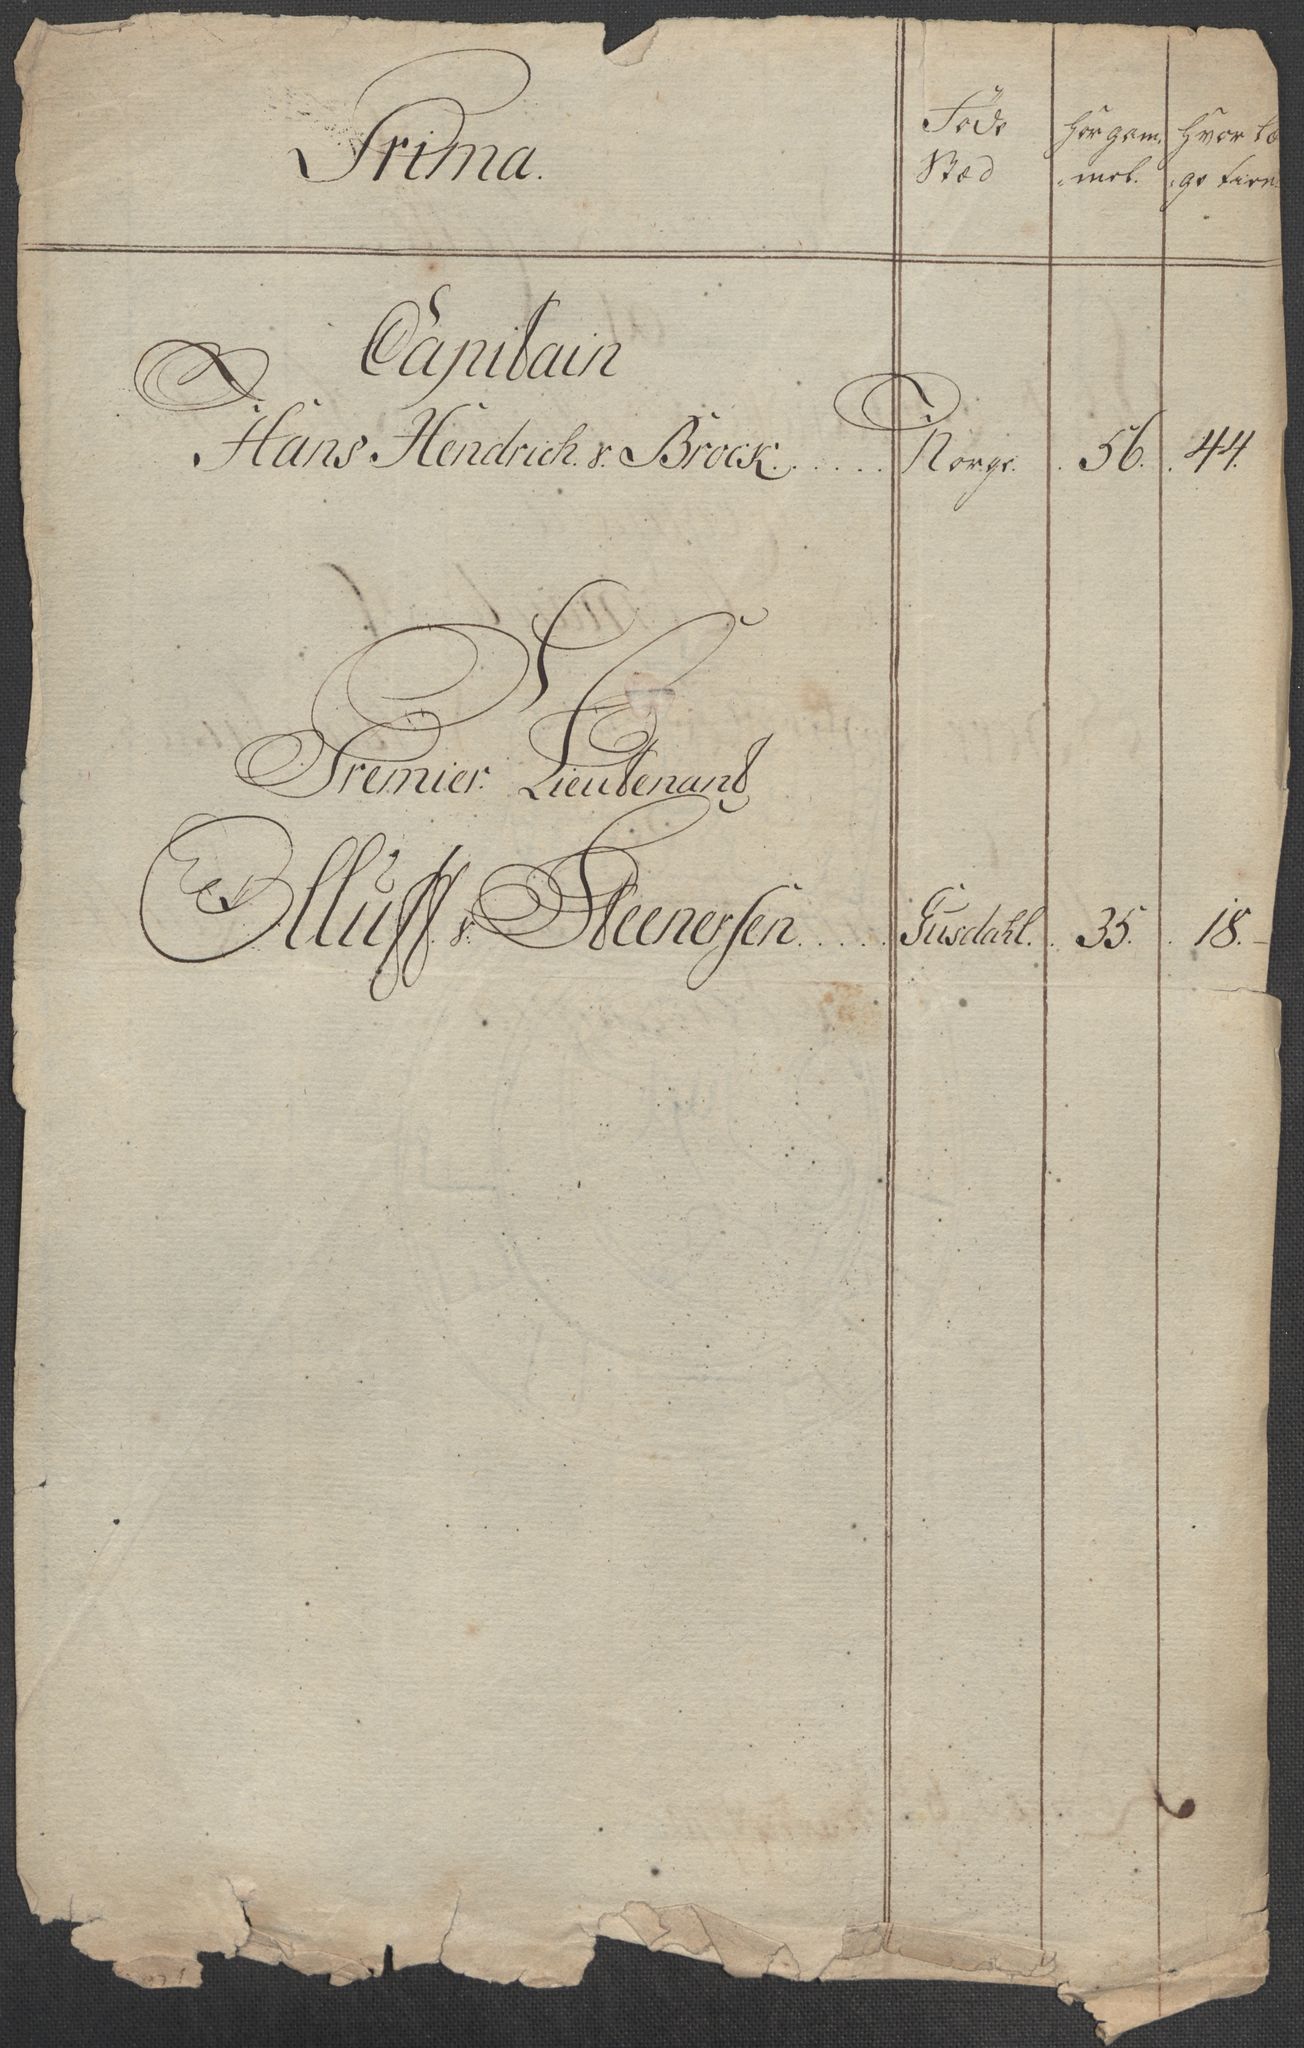 Prima.
Føde Stæd
Hor gam, mel.
Hvor læ, ge tien
Capitain
Hans Hendrich. v. Brock. . . . . . Norge. . 56. . 44.
Premier. Lieutenant
Olluff. v. Steenersen. . . . . Gusdahl. . 35. . 18.